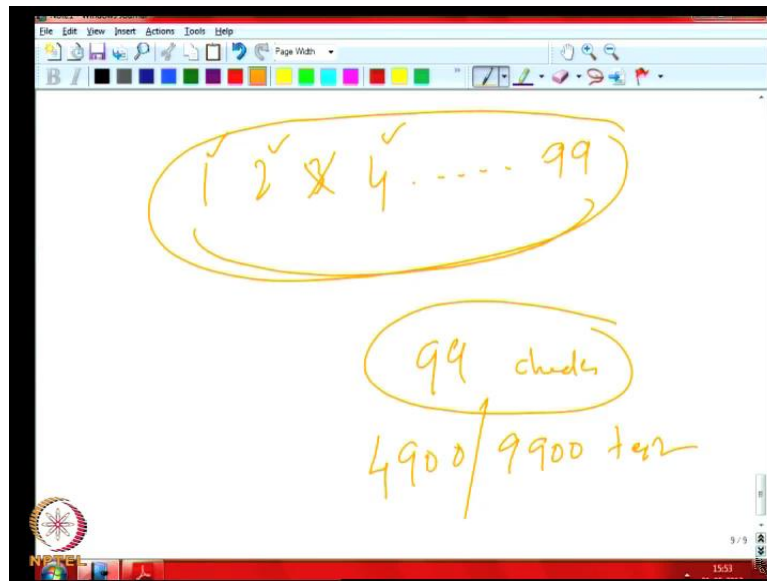 File Edit View Insert Actions Tools Help
Page Width
B I
1 2 3 4 ..... 99
99 checks
4900/9900
9/9
NPTEL
15:53